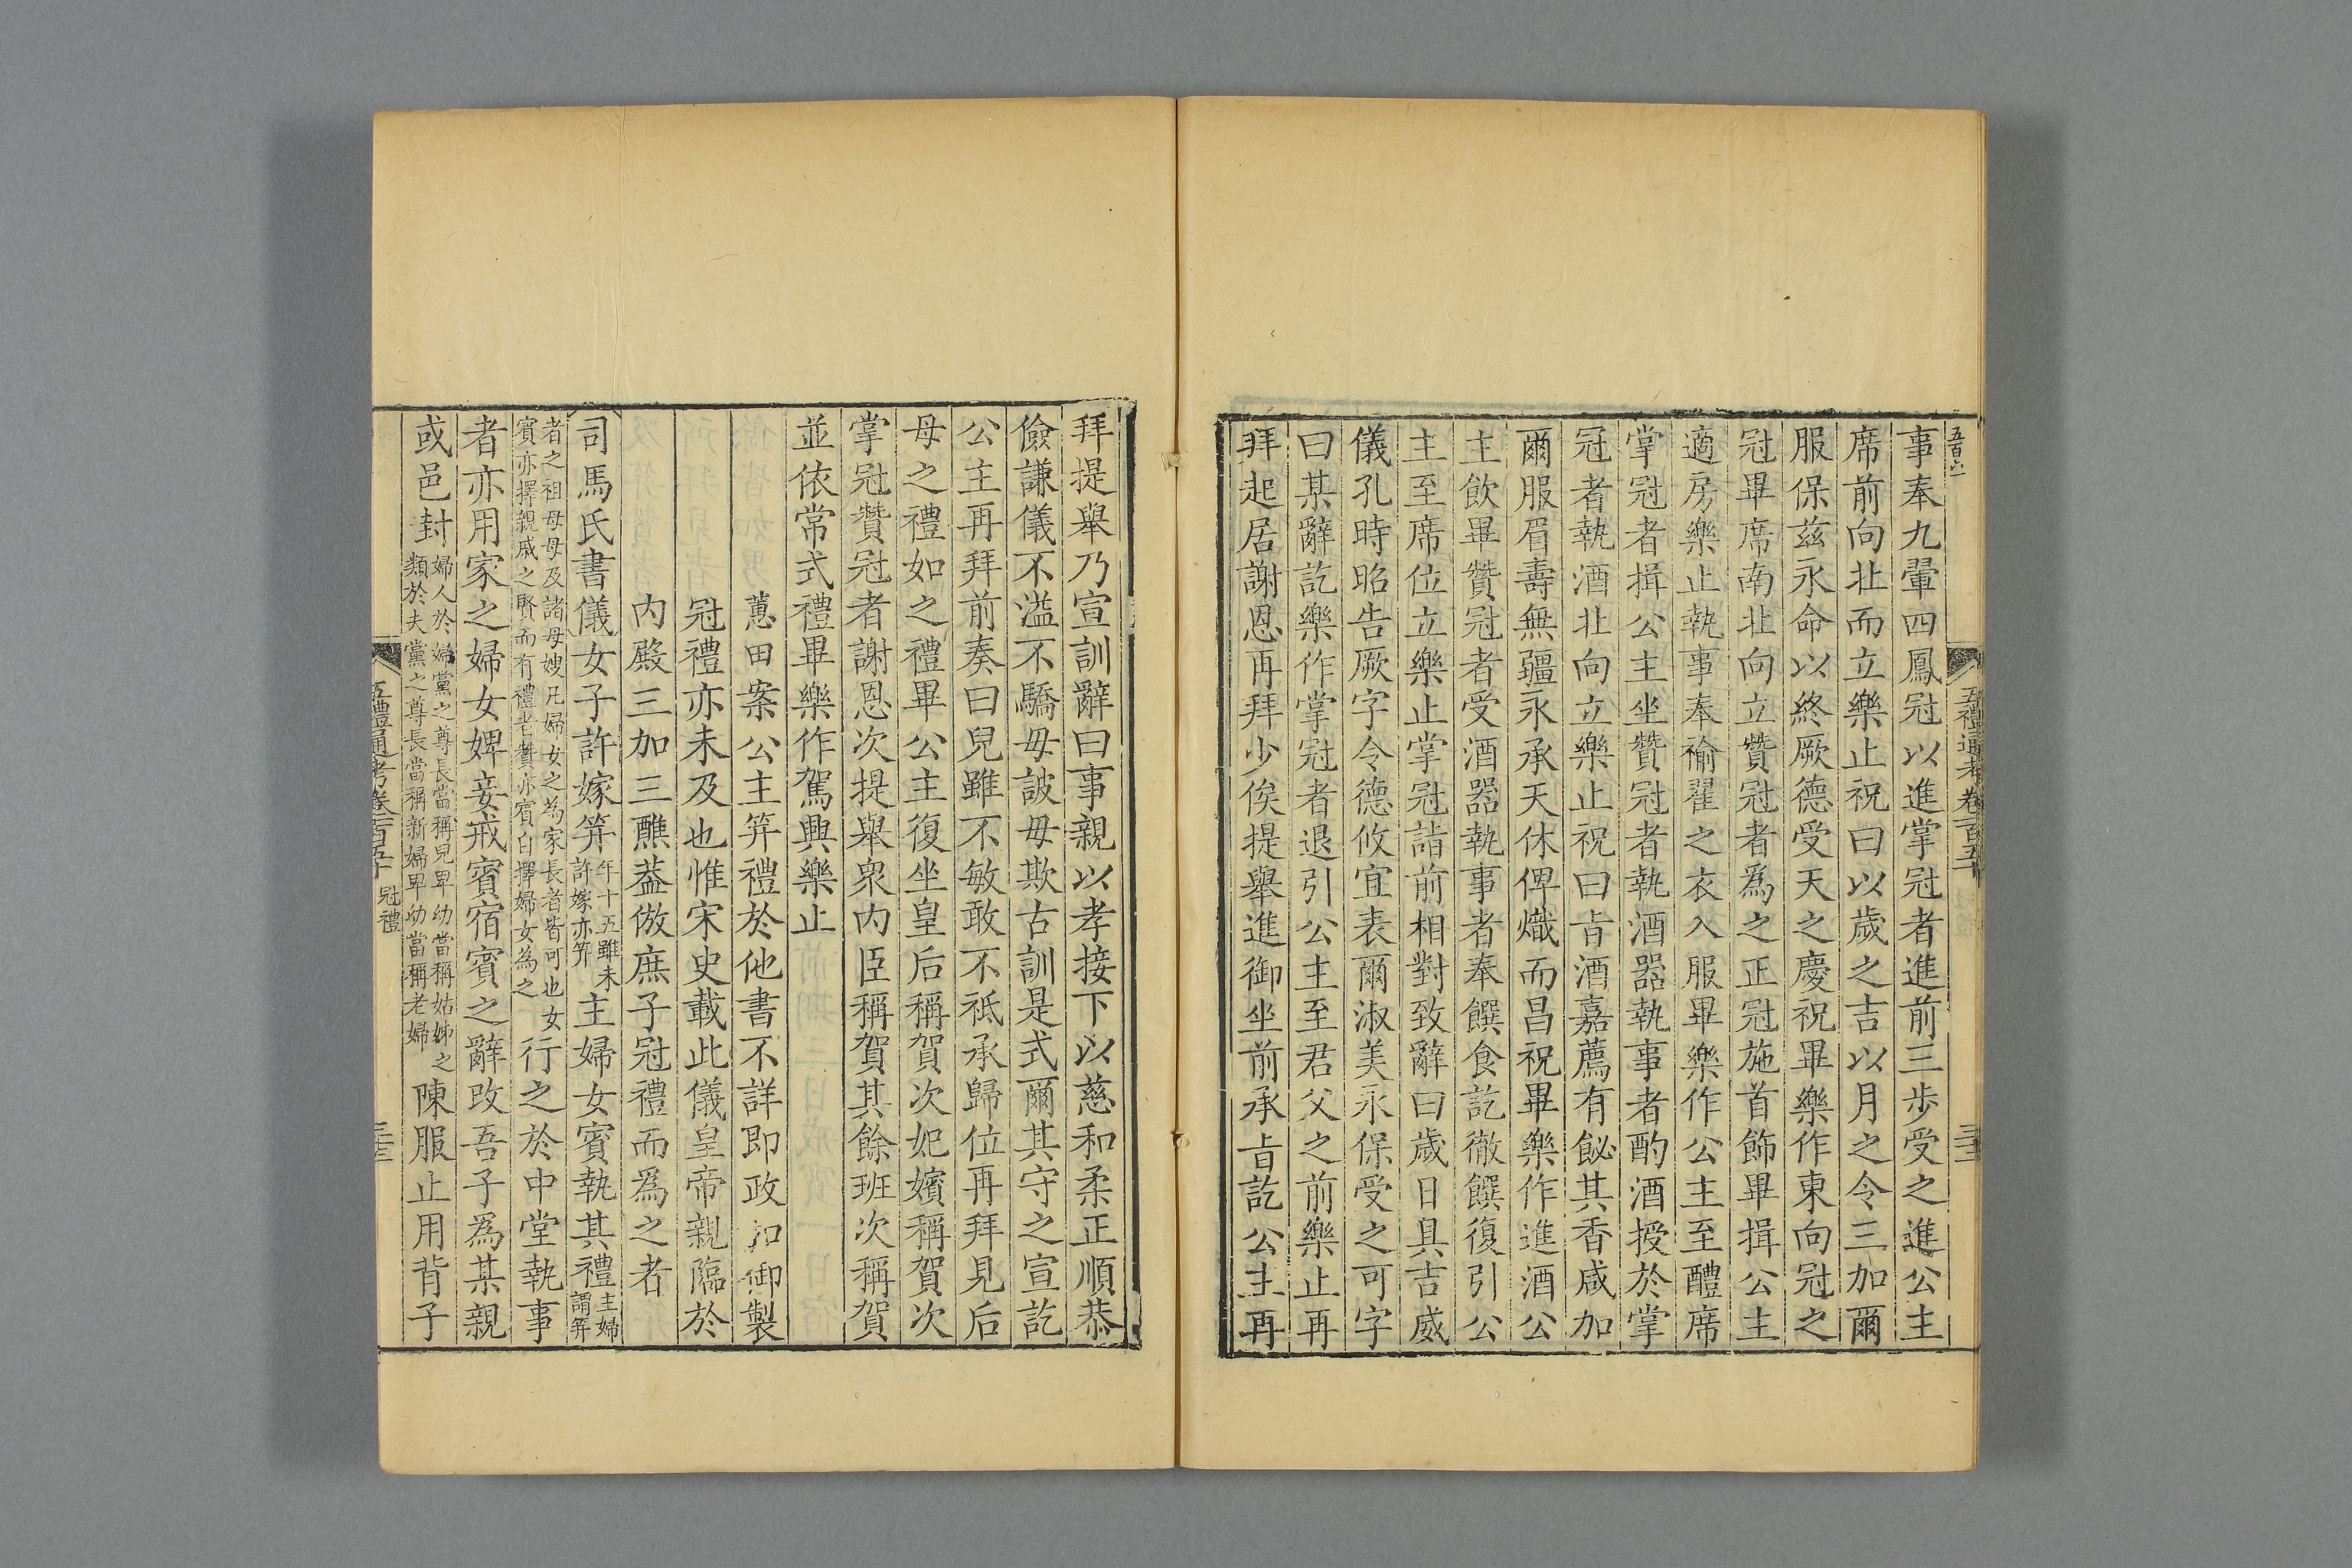 五百六
五禮通考卷一百五十
事奉九翬四鳳冠以進掌冠者進前三步受之進公主
席前向北而立樂止祝曰以歲之吉以月之令三加爾
服保兹永命以終厥德受天之慶祝畢樂作東向冠之
冠畢席南北向立贊冠者為之正冠施首飾畢揖公主
適房樂止執事奉褕翟之衣入服畢樂作公主至醴席
掌冠者揖公主坐贊冠者執酒器執事者酌酒授於掌
冠者執酒北向立樂止祝曰旨酒嘉薦有飶其香咸加
爾服眉壽無疆永承天休俾熾而昌祝畢樂作進酒公
主飲畢贊冠者受酒器執事者奉饌食訖徹饌復引公
主至席位立樂止掌冠詣前相對致辭曰歲日具吉威
儀孔時昭告厥字令德攸宜表爾淑美永保受之可字
曰某辭訖樂作掌冠者退引公主至君父之前樂止再
拜起居謝恩再拜少俟提舉進御坐前承旨訖公主再
拜提舉乃宣訓辭曰事親以孝接下以慈和柔正順恭
儉謙儀不溢不驕毋詖毋欺古訓是式爾其守之宣訖
公主再拜前奏曰兒雖不敏敢不祗承歸位再拜見后
母之禮如之禮畢公主復坐皇后稱賀次妃嬪稱賀次
掌冠贊冠者謝恩次提舉衆内臣稱賀其餘班次稱賀
並依常式禮畢樂作駕興樂止
蕙田案公主笄禮於他書不詳即政和御製
冠禮亦未及也惟宋史載此儀皇帝親臨於
内殿三加三醮葢倣庶子冠禮而為之者
司馬氏書儀女子許嫁笄年十五雖未許嫁亦笄主婦女賓執其禮主婦謂笄
者之祖母母及諸母嫂凡婦女之為家長者皆可也女賓亦擇親戚之賢而有禮者贊亦賓自擇婦女為之行之於中堂執事
者亦用家之婦女婢妾戒賓宿賓之辭改吾子為某親
或邑封婦人於婦黨之尊長當稱兒卑幼當稱姑姊之類於夫黨之尊長當稱新婦卑幼當稱老婦陳服止用背子
五禮通考卷一百五十 冠禮